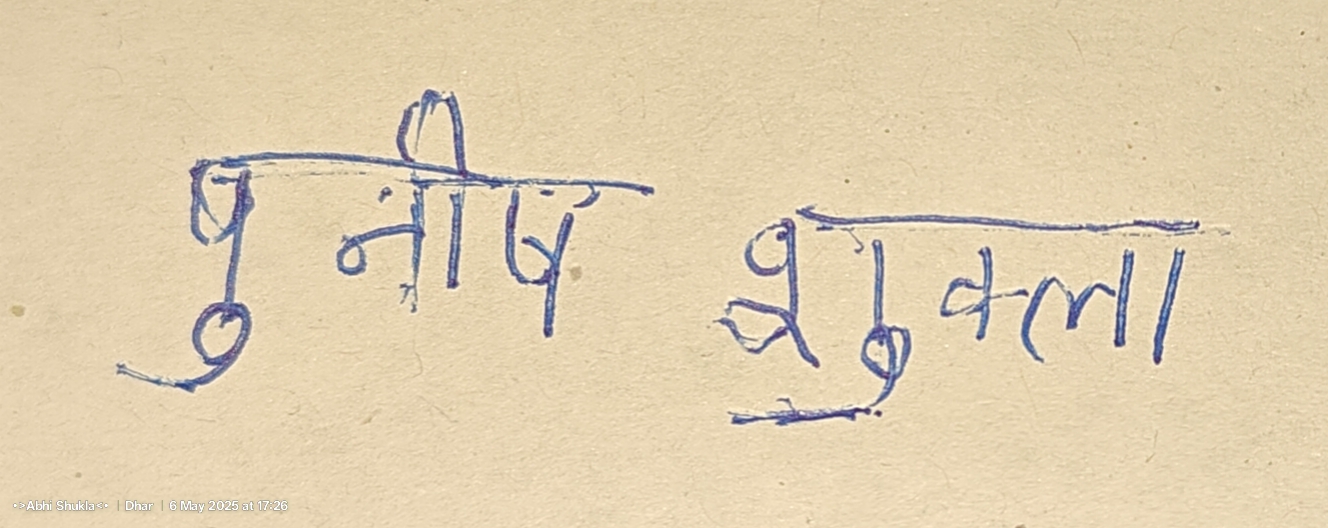 पुनीष शुक्ला
•>Abhi Shukla<• | Dhar | 6 May 2025 at 17:26